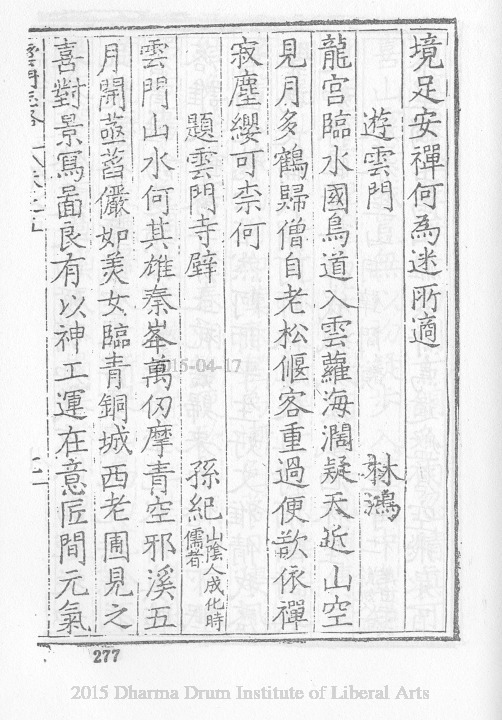 境足安禪何為迷所適
遊雲門　林鴻
龍宮臨水國鳥道入雲蘿海濶疑天近山空
見月多鶴歸僧自老松偃客重過便欲依禪
寂塵纓可柰何
題雲門寺壁　孫紀山陰人成化時儒者
雲門山水何其雄秦峯萬仞摩青空邪溪五
月開菡萏儼如羙女臨青銅城西老圃見之
喜對景寫啚良有以神工運在意匠間元氣
2015-04-17
277
2015 Dharma Drum Institute of Liberal Arts